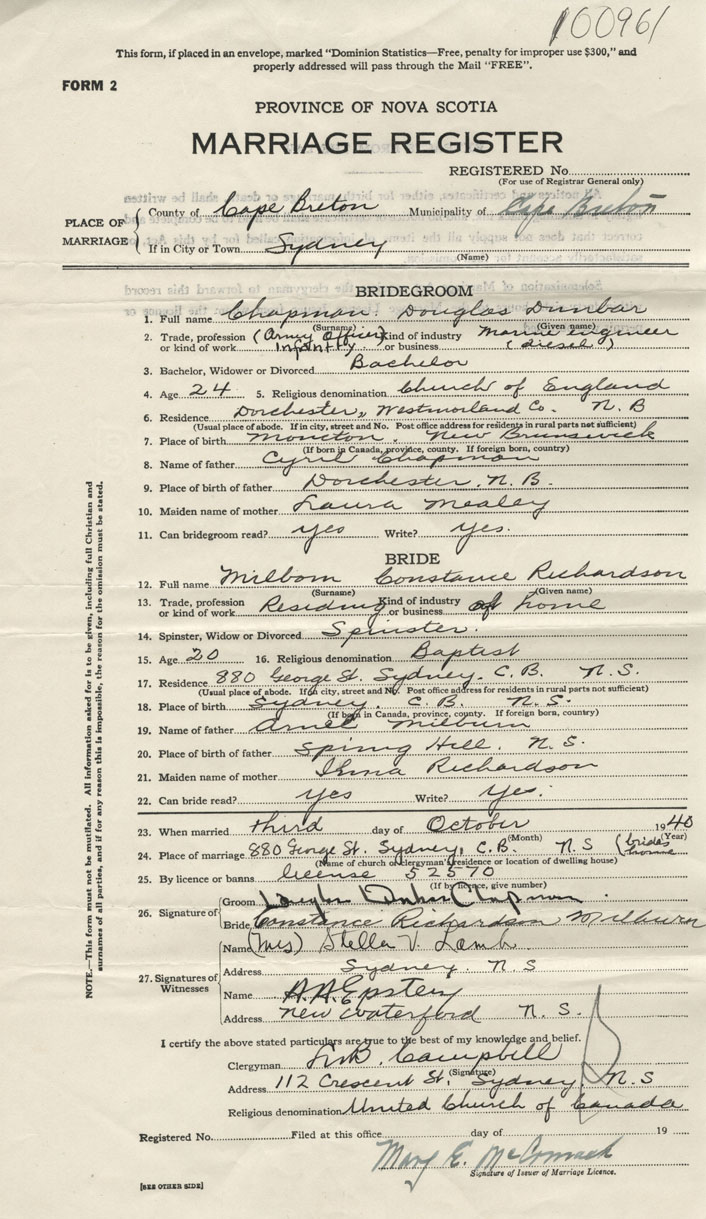 100961
This form, if placed in an envelope, marked "Dominion Statistics—Free, penalty for improper use $300," and
properly addressed will pass through the Mail "FREE".
FORM 2
PROVINCE OF NOVA SCOTIA
MARRIAGE REGISTER
REGISTERED No.
(For use of Registrar General only)
PLACE OF MARRIAGE
County of Cape Breton Municipality of Cape Breton
If in City or Town Sydney
(Name)
BRIDEGROOM
1. Full name Chapman Douglas Dunbar
(Surname) (Given name)
2. Trade, profession or kind of work (Army Officer) Infantry Kind of industry or business Marine engineer (diesel)
3. Bachelor, Widower or Divorced Bachelor
4. Age 24 5. Religious denomination Church of England
6. Residence Dorchester, Westmorland Co. N.B
(Usual place of abode. If in city, street and No. Post office address for residents in rural parts not sufficient)
7. Place of birth Moncton, New Brunswick
(If born in Canada, province, county. If foreign born, country)
8. Name of father Cyril Chapman
9. Place of birth of father Dorchester, N.B.
10. Maiden name of mother Laura Mealey
11. Can bridegroom read? yes Write? yes.
BRIDE
12. Full name Milborn Constance Richardson
(Surname) (Given name)
13. Trade, profession or kind of work Residing Kind of industry or business at home
14. Spinster, Widow or Divorced Spinster.
15. Age 20 16. Religious denomination Baptist
17. Residence 880 George St. Sydney, C.B. N.S.
(Usual place of abode. If in city, street and No. Post office address for residents in rural parts not sufficient)
18. Place of birth Sydney. C.B. N.S.
(If born in Canada, province, county. If foreign born, country)
19. Name of father Milburn
20. Place of birth of father Spring Hill. N.S.
21. Maiden name of mother Richardson
22. Can bride read? yes Write? yes.
23. When married third day of October 1940
(Month) (Year)
24. Place of marriage 880 George St. Sydney, C.B. N.S (brides home
(Name of church or clergyman's residence or location of dwelling house)
25. By licence or banns license 52570
(If by licence, give number)
26. Signature of
Groom Douglas Dunbar Chapman
Bride Constance Richardson Milburn
27. Signatures of Witnesses
Name (Mrs) Stella V. Lamb
Address Sydney. N.S
Name A.A. Epstein
Address New Waterford N.S.
I certify the above stated particulars are true to the best of my knowledge and belief.
Clergyman Campbell
(Signature)
Address 112 Crescent St, Sydney, N.S
Religious denomination United Church of Canada
Registered No. Filed at this office day of 19
Mary E. McCormack
Signature of Issuer of Marriage Licence.
[SEE OTHER SIDE]
NOTE.—This form must not be mutilated. All information asked for is to be given, including full Christian and
surnames of all parties, and if for any reason this is impossible, the reason for the omission must be stated.